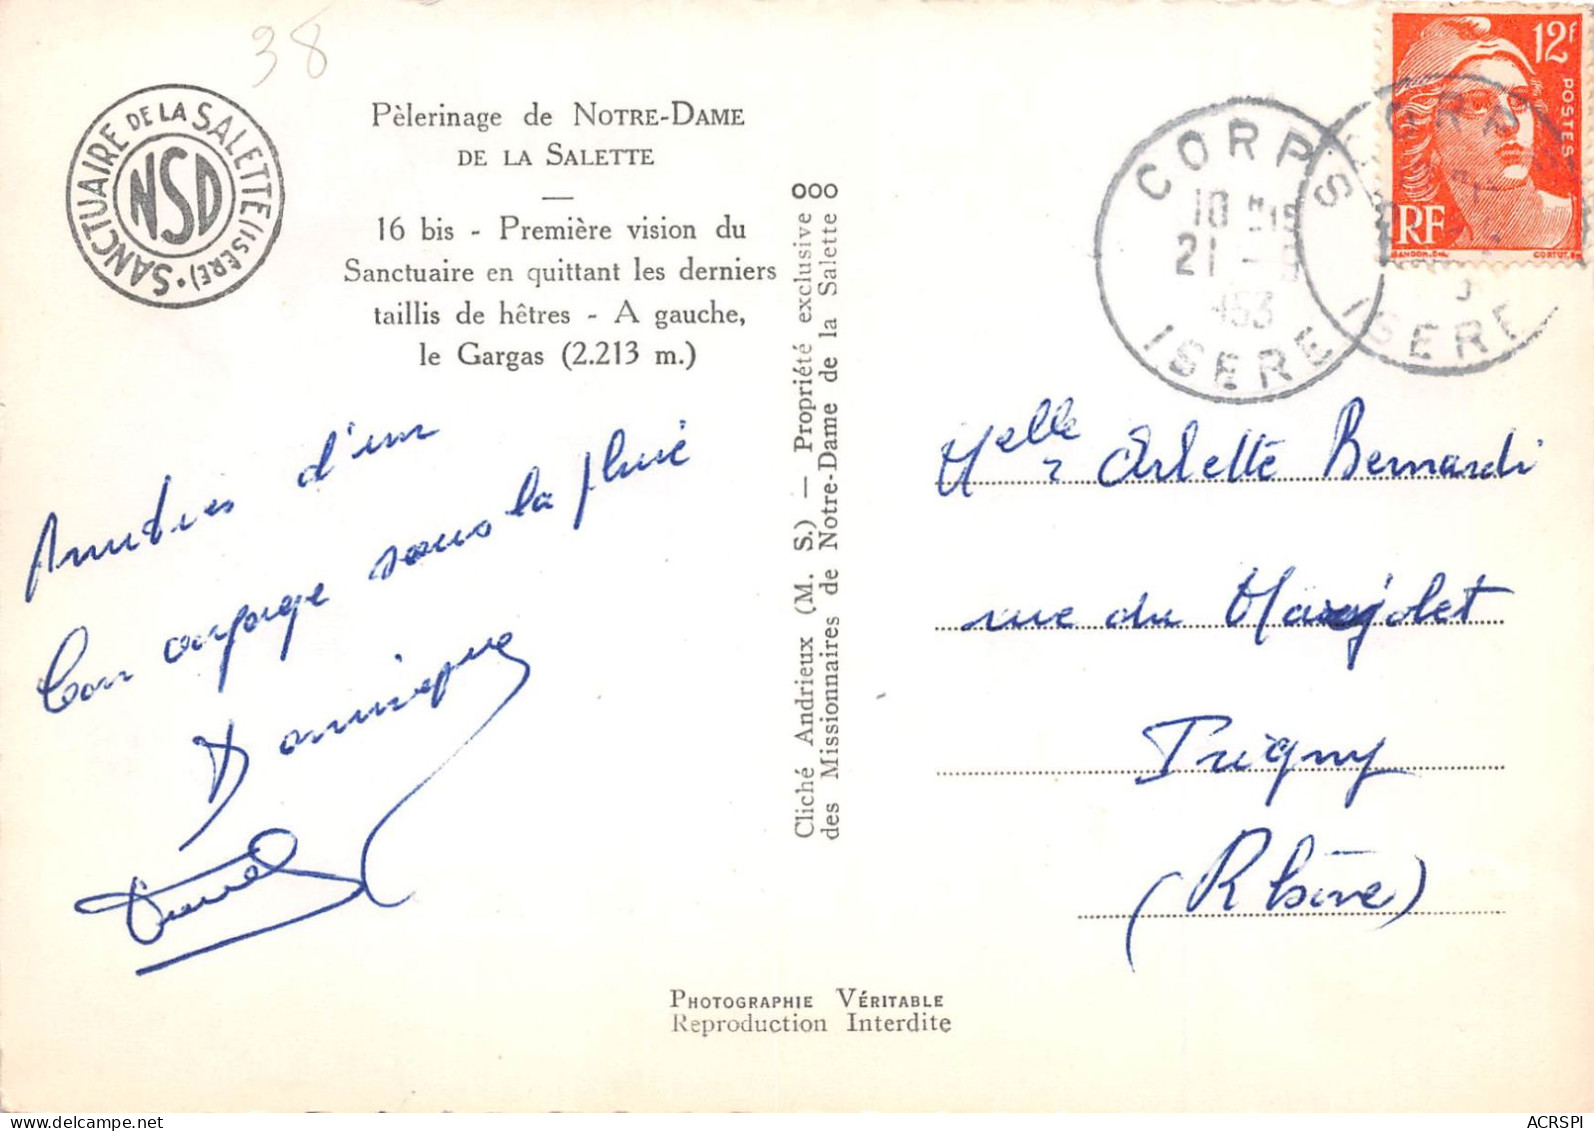 38
SANCTUAIRE DE LA SALETTE (ISÈRE) •
NSD
Pèlerinage de NOTRE-DAME
DE LA SALETTE
16 bis - Première vision du
Sanctuaire en quittant les derniers
taillis de hêtres - A gauche,
le Gargas (2.213 m.)
d'un
sous la pluie
Dominique
Cliché Andrieux (M. S.) — Propriété exclusive ooo
des Missionnaires de Notre-Dame de la Salette o
12f
POSTES
RF
GANDON.
CORTOT.
CORPS
21
ISERE
ISERE
Melle Arlette Bernardi
rue du
(Rhône)
PHOTOGRAPHIE VÉRITABLE
Reproduction Interdite
ACRSPI